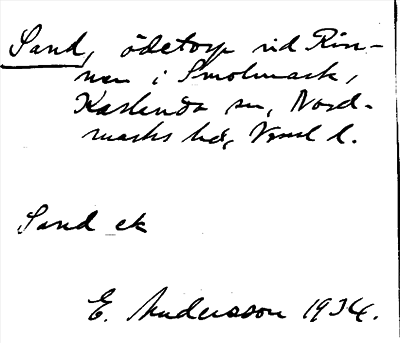 Sand, ödetorp vid Rin-
nen i Smolmark,
Karlanda sn, Nord-
marks hd, Vrml l.
Sand ek
E. Andersson 1934.